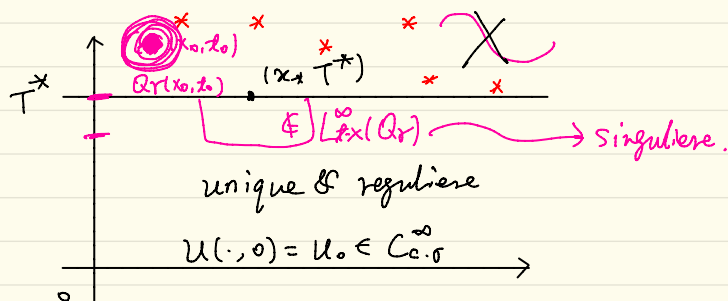 (x₀, t₀)
Qr(x₀, t₀)
(x*, T*)
T*
∉ L^∞_{t,x}(Qr) → singuliere.
unique & reguliere
U(·, 0) = U₀ ∈ C^∞_{c,σ}